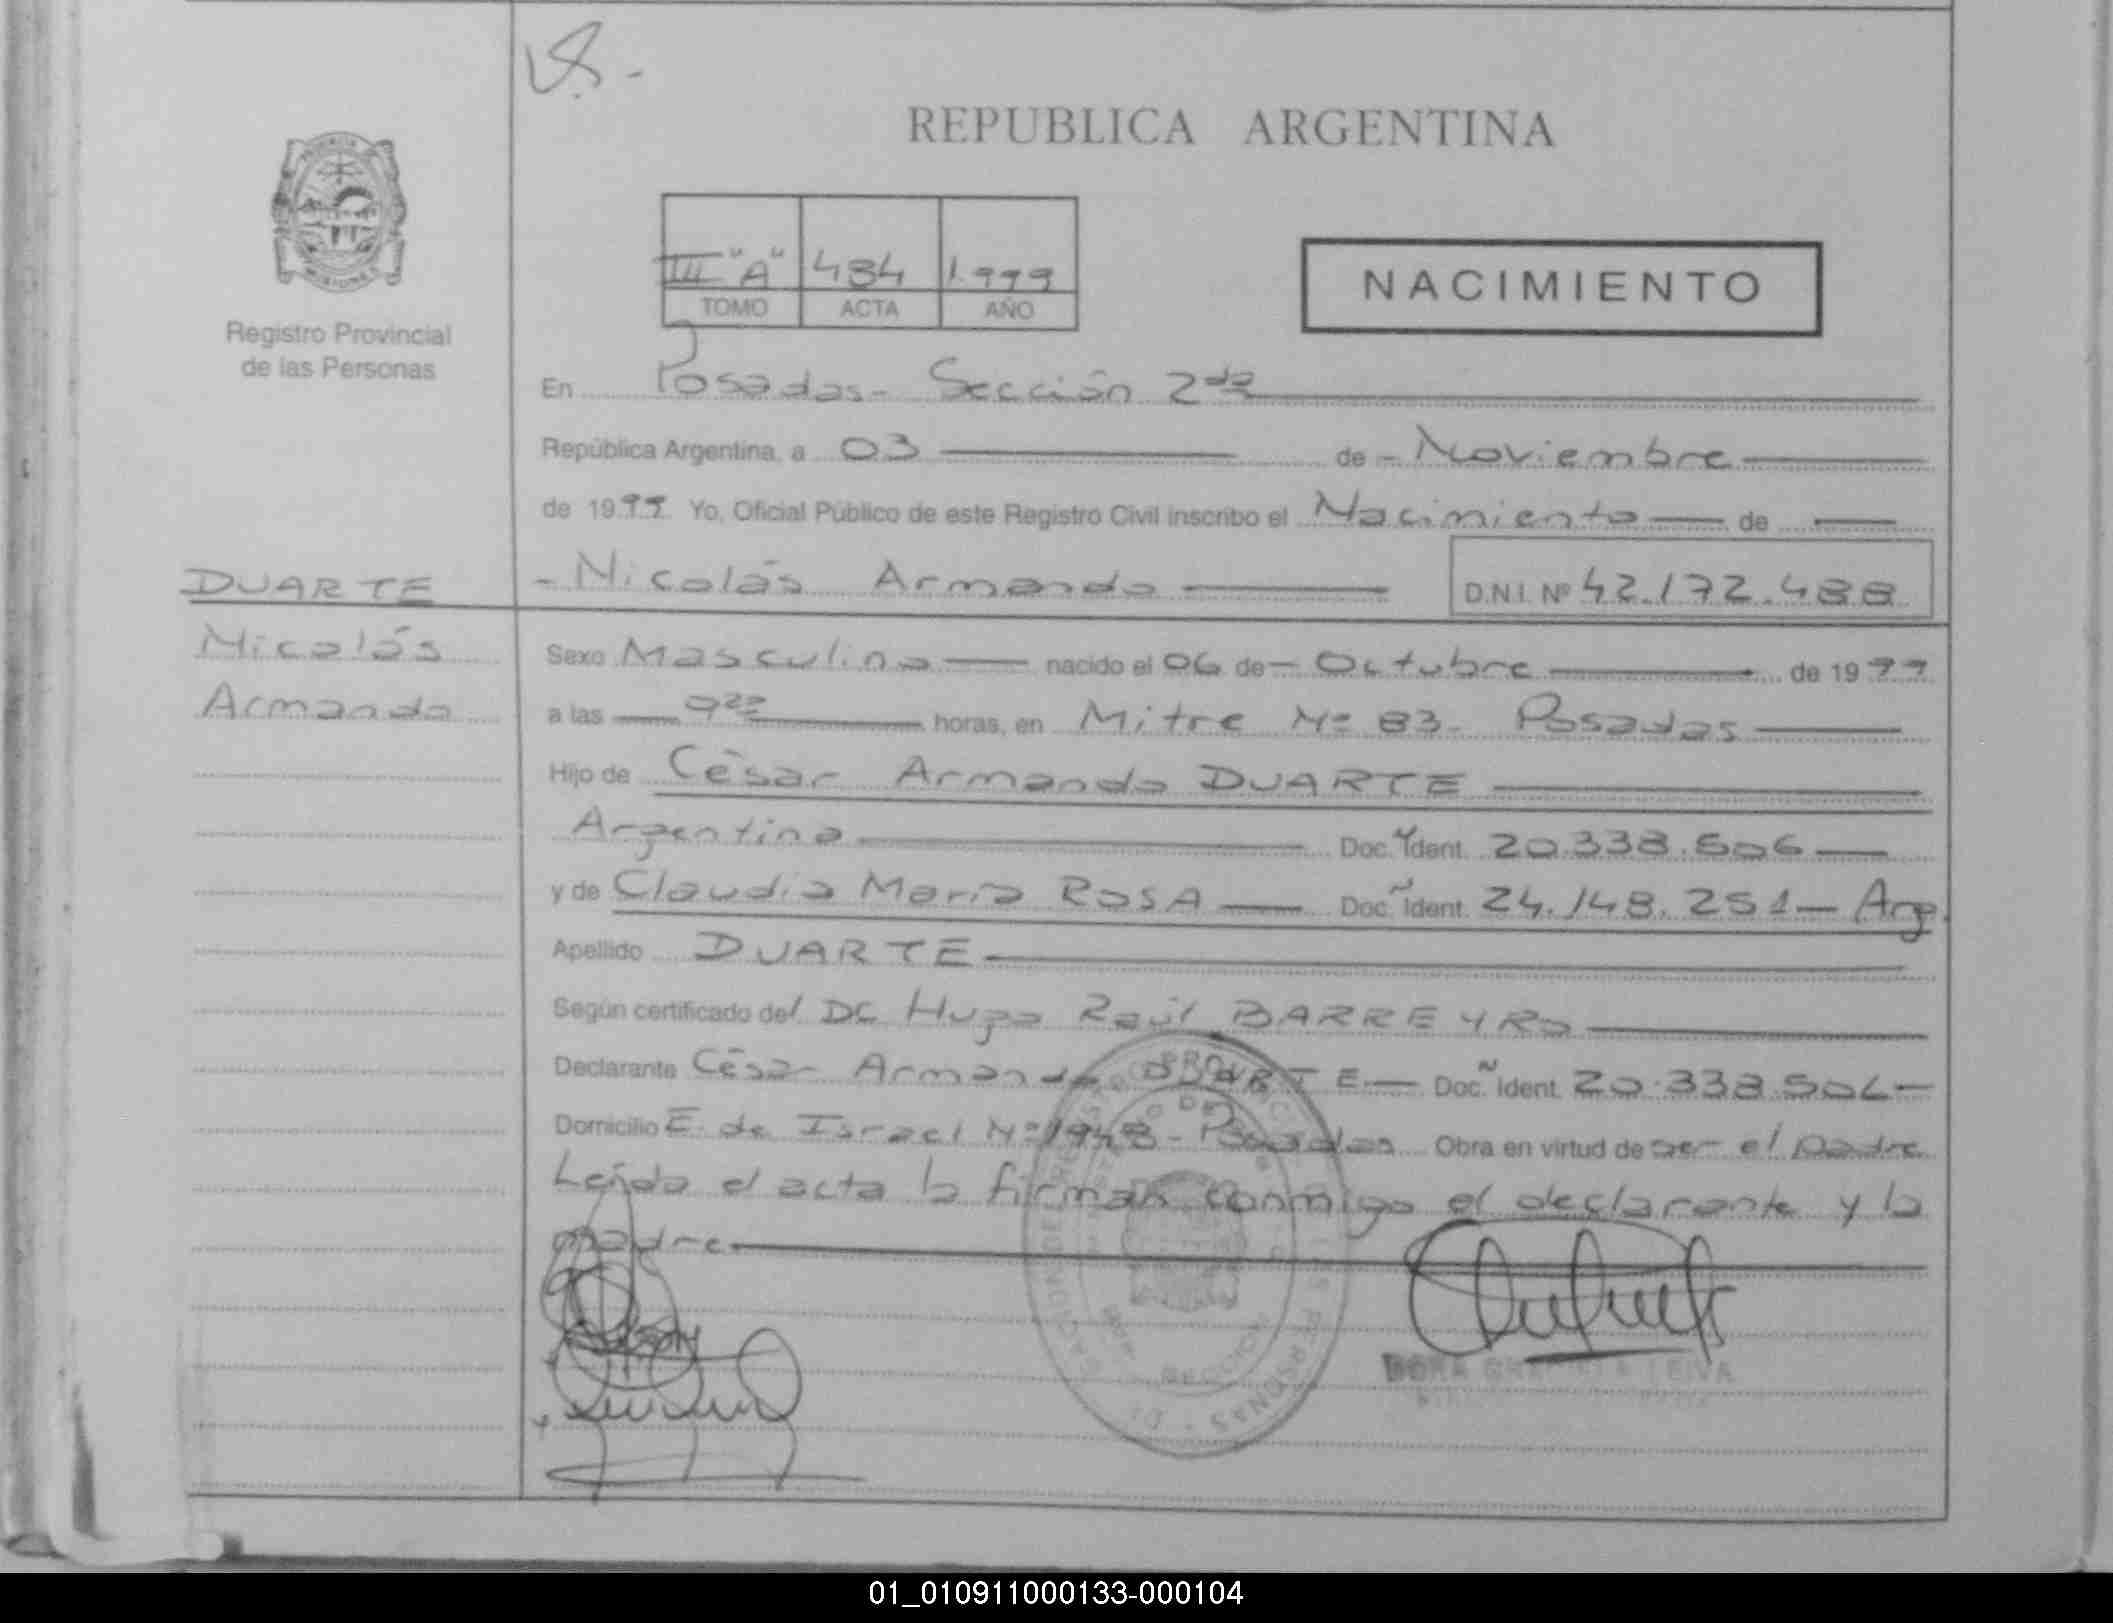 REPUBLICA ARGENTINA
III "A" 484 1.999
TOMO ACTA AÑO
NACIMIENTO
Registro Provincial
de las Personas
En Posadas - Sección 2da
República Argentina, a 03 de - Noviembre
de 1999 Yo, Oficial Público de este Registro Civil inscribo el Nacimiento de
- Nicolás Armando D.N.I. Nº 42.172.488
DUARTE
Nicolás
Armando
Sexo Masculino nacido el 06 de - Octubre de 1999
a las horas, en Mitre Nº 83 - Posadas
Hijo de César Armando DUARTE
Argentino Doc. Ident. 20.338.506
y de Claudia María ROSA Doc. Ident. 24.148.251 - Arg.
Apellido DUARTE
Según certificado del Dr Hugo Raúl BARREYRO
Declarante César Armando DUARTE Doc. Ident. 20.338.506
Domicilio E. de Israel Nº 1948 - Posadas Obra en virtud de ser el padre
Leída el acta la firman conmigo el declarante y la
madre
DORA LEIVA
01_010911000133-000104